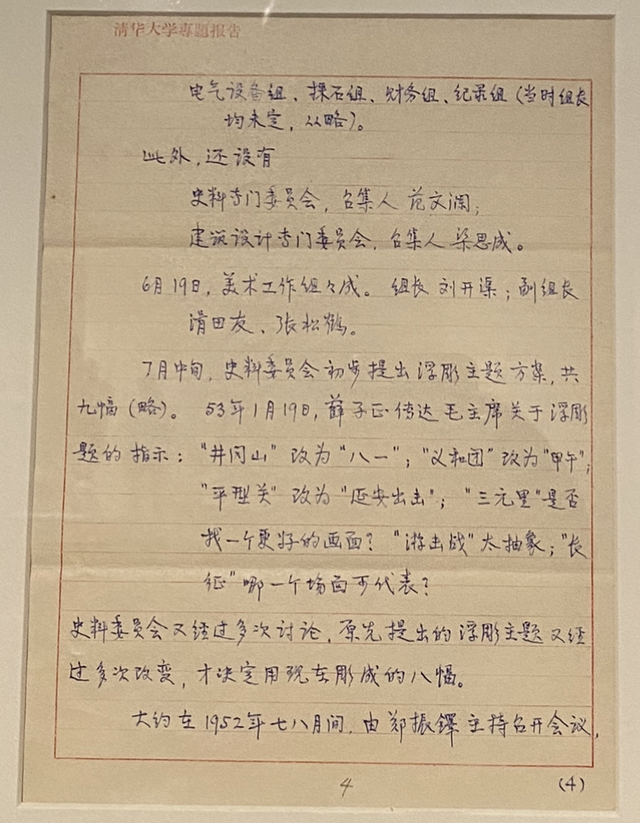 清华大学专题报告
电气设备组、採石组、财务组、纪录组(当时组长
均未定,从略)。
此外,还设有
史料专门委员会,召集人 范文澜;
建筑设计专门委员会,召集人 梁思成。
6月19日,美术工作组々成。组长 刘开渠;副组长
滑田友、张松鹤。
7月中旬,史料委员会初步提出浮彫主题方案,共
九幅(略)。53年1月19日,薛子正传达毛主席关于浮彫
题的指示:"井冈山"改为"八一";"义和团"改为"甲午";
"平型关"改为"延安出击";"三元里"是否
找一个更好的画面?"游击战"太抽象;"长
征"哪一个场面可代表?
史料委员会又经过多次讨论,原先提出的浮彫主题又经
过多次改变,才决定用现在彫成的八幅。
大约在1952年七八月间,由郑振铎主持召开会议,
4
(4)